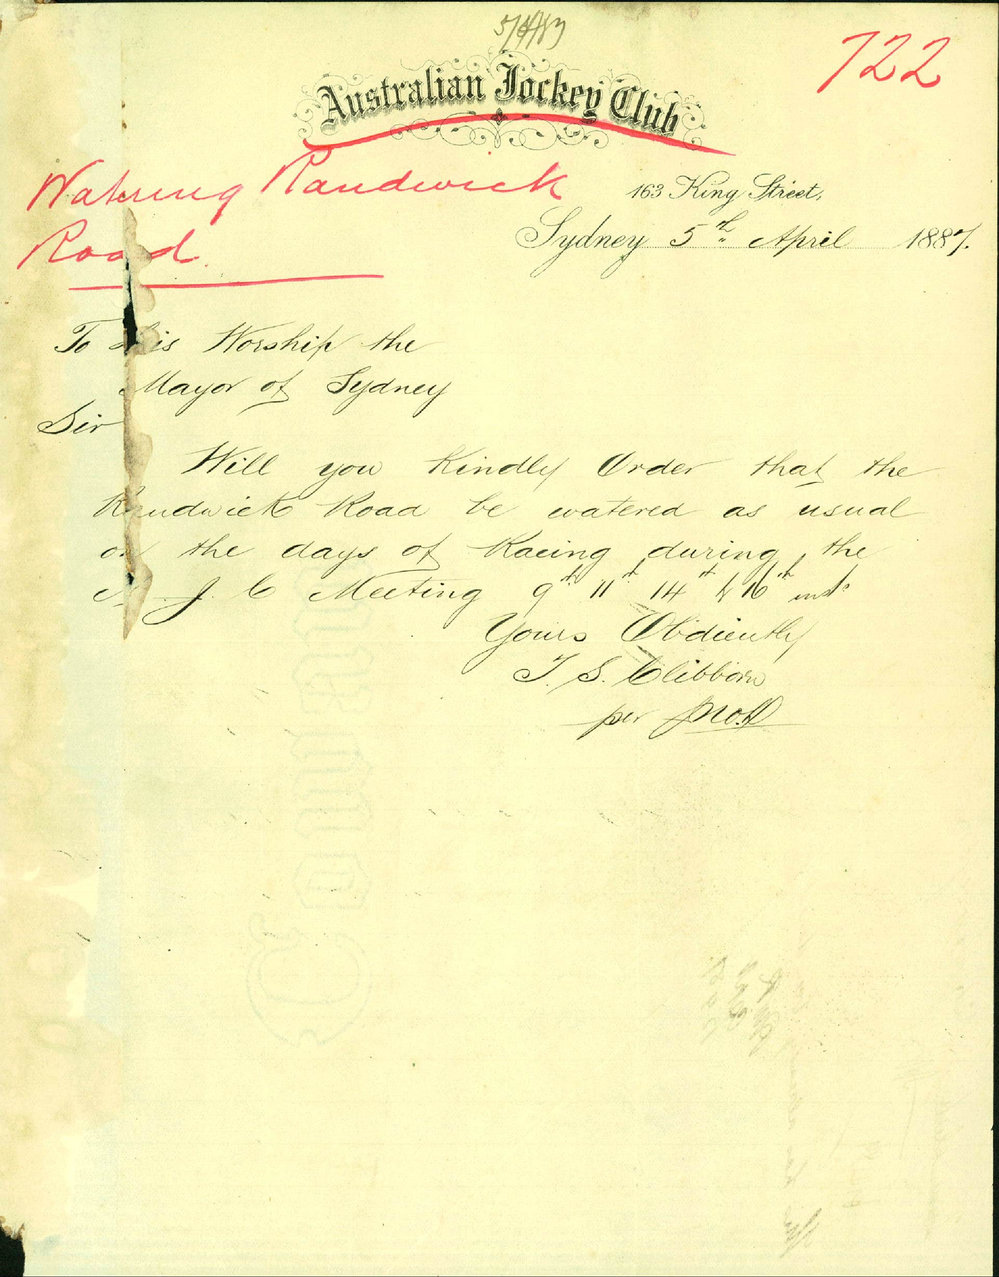 5/4/87
722
Australian Jockey Club
Watering Randwick
Road
163 King Street,
Sydney 5th April 1887.
To His Worship the
Mayor of Sydney
Sir
Will you Kindly Order that the
Randwick Road be watered as usual
on the days of Racing during the
A. J. C Meeting 9th 11th 14th & 16th inst
Yours Obdiently
T. S. Clibborn
per